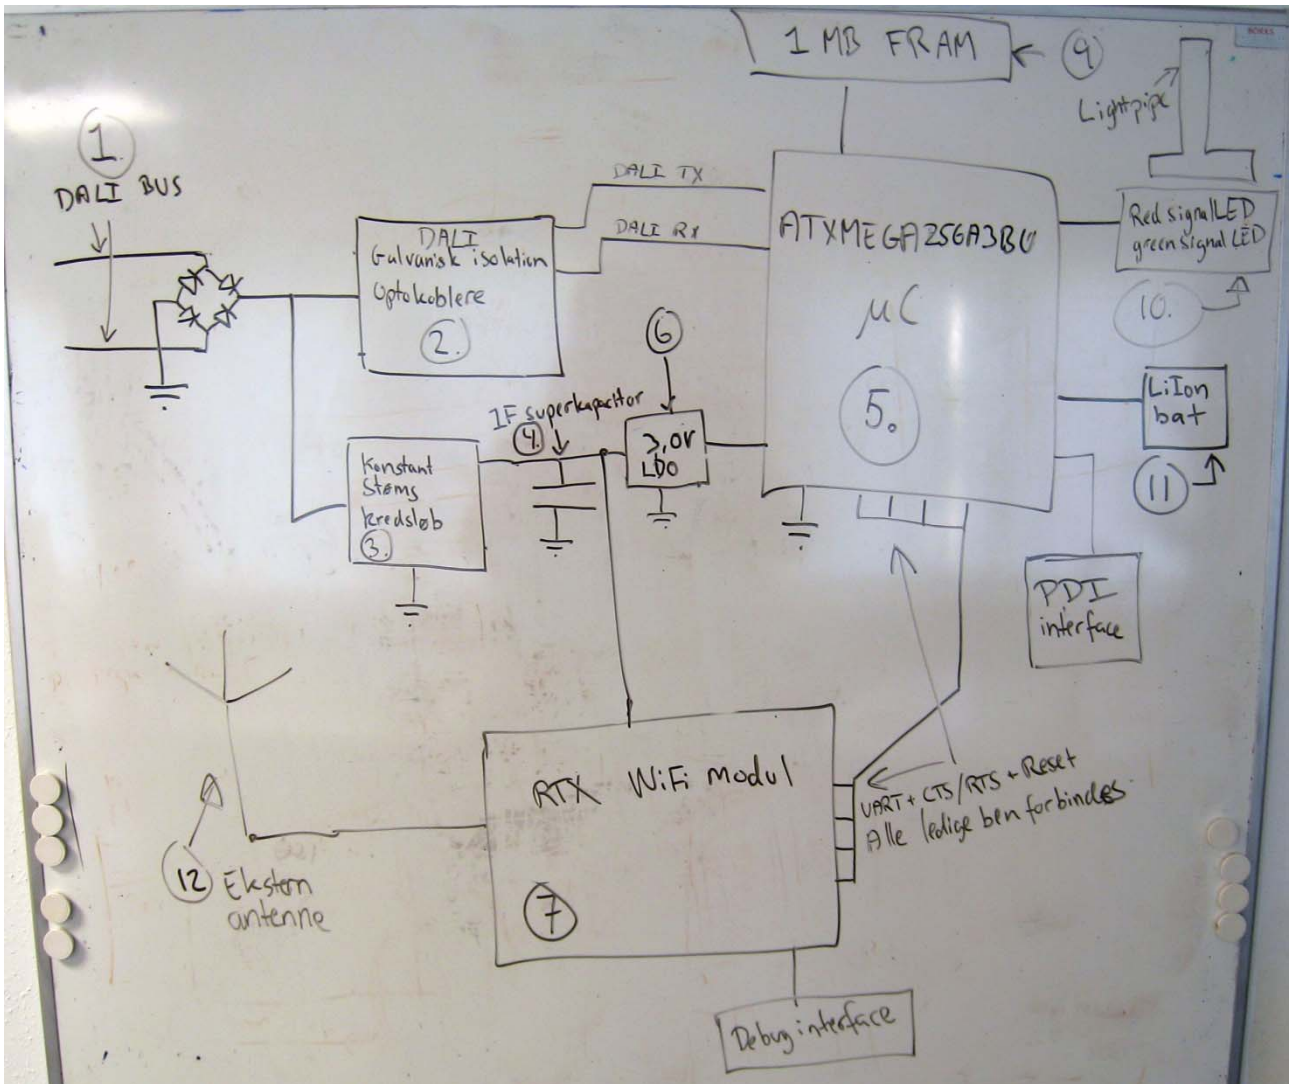 1 MB FRAM
9
Lightpipe
1.
DALI BUS
DALI TX
DALI RX
DALI
Galvanisk isolation
Optokoblere
2.
ATXMEGA256A3BU
µC
5.
Red signal LED
green signal LED
10.
6
1F superkapacitor
4.
3,0V
LDO
LiIon
bat
11
Konstant
Strøms
kredsløb
3.
PDI
interface
RTX WiFi modul
7
UART + CTS/RTS + Reset
Alle ledige ben forbindes
12
Ekstern
antenne
Debug interface